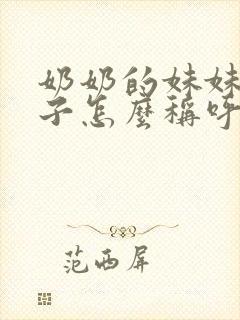 奶奶的妹妹
子怎麼稱呼
范西屏